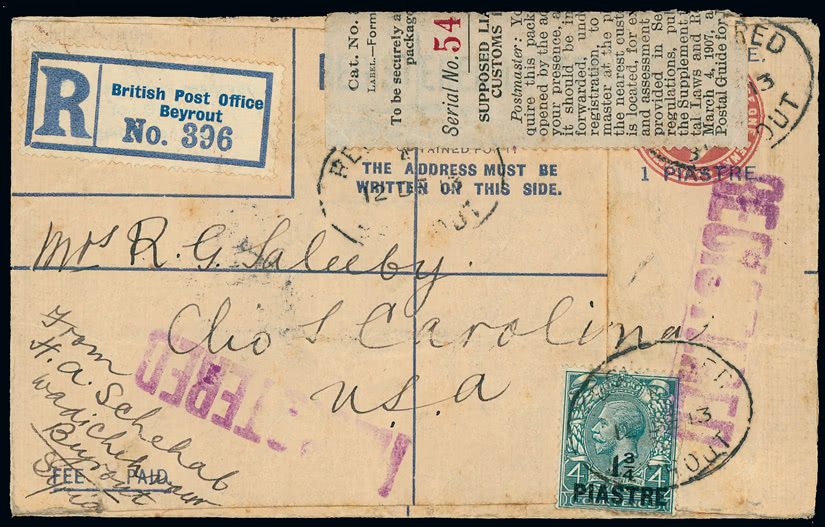 R
British Post Office
Beyrout
No. 396
Cat. No.
LABEL.—Form
To be securely a
package
Serial No. 54
SUPPOSED LIA
CUSTOMS
Postmaster: Yo
quire this pack
opened by the ad
your presence, a
it should be in
forwarded, und
registration, to
master at the p
the nearest cust
is located, for ex
and assessment
scribed in Se
regulations, pu
the Supplement
tal Laws and R
March 4, 1907, a
Postal Guide for
RED
13
OUT
1 PIASTRE
THE ADDRESS MUST BE
WRITTEN ON THIS SIDE.
RE
12 DE
OUT
Mrs R. G. Saleeby.
Clio S Carolina
U.S.A
From
H. A. Schehab
Beyrout
Syria
FEE PAID
REGISTERED
STERED
4
4
1¾
PIASTRE
13
OUT